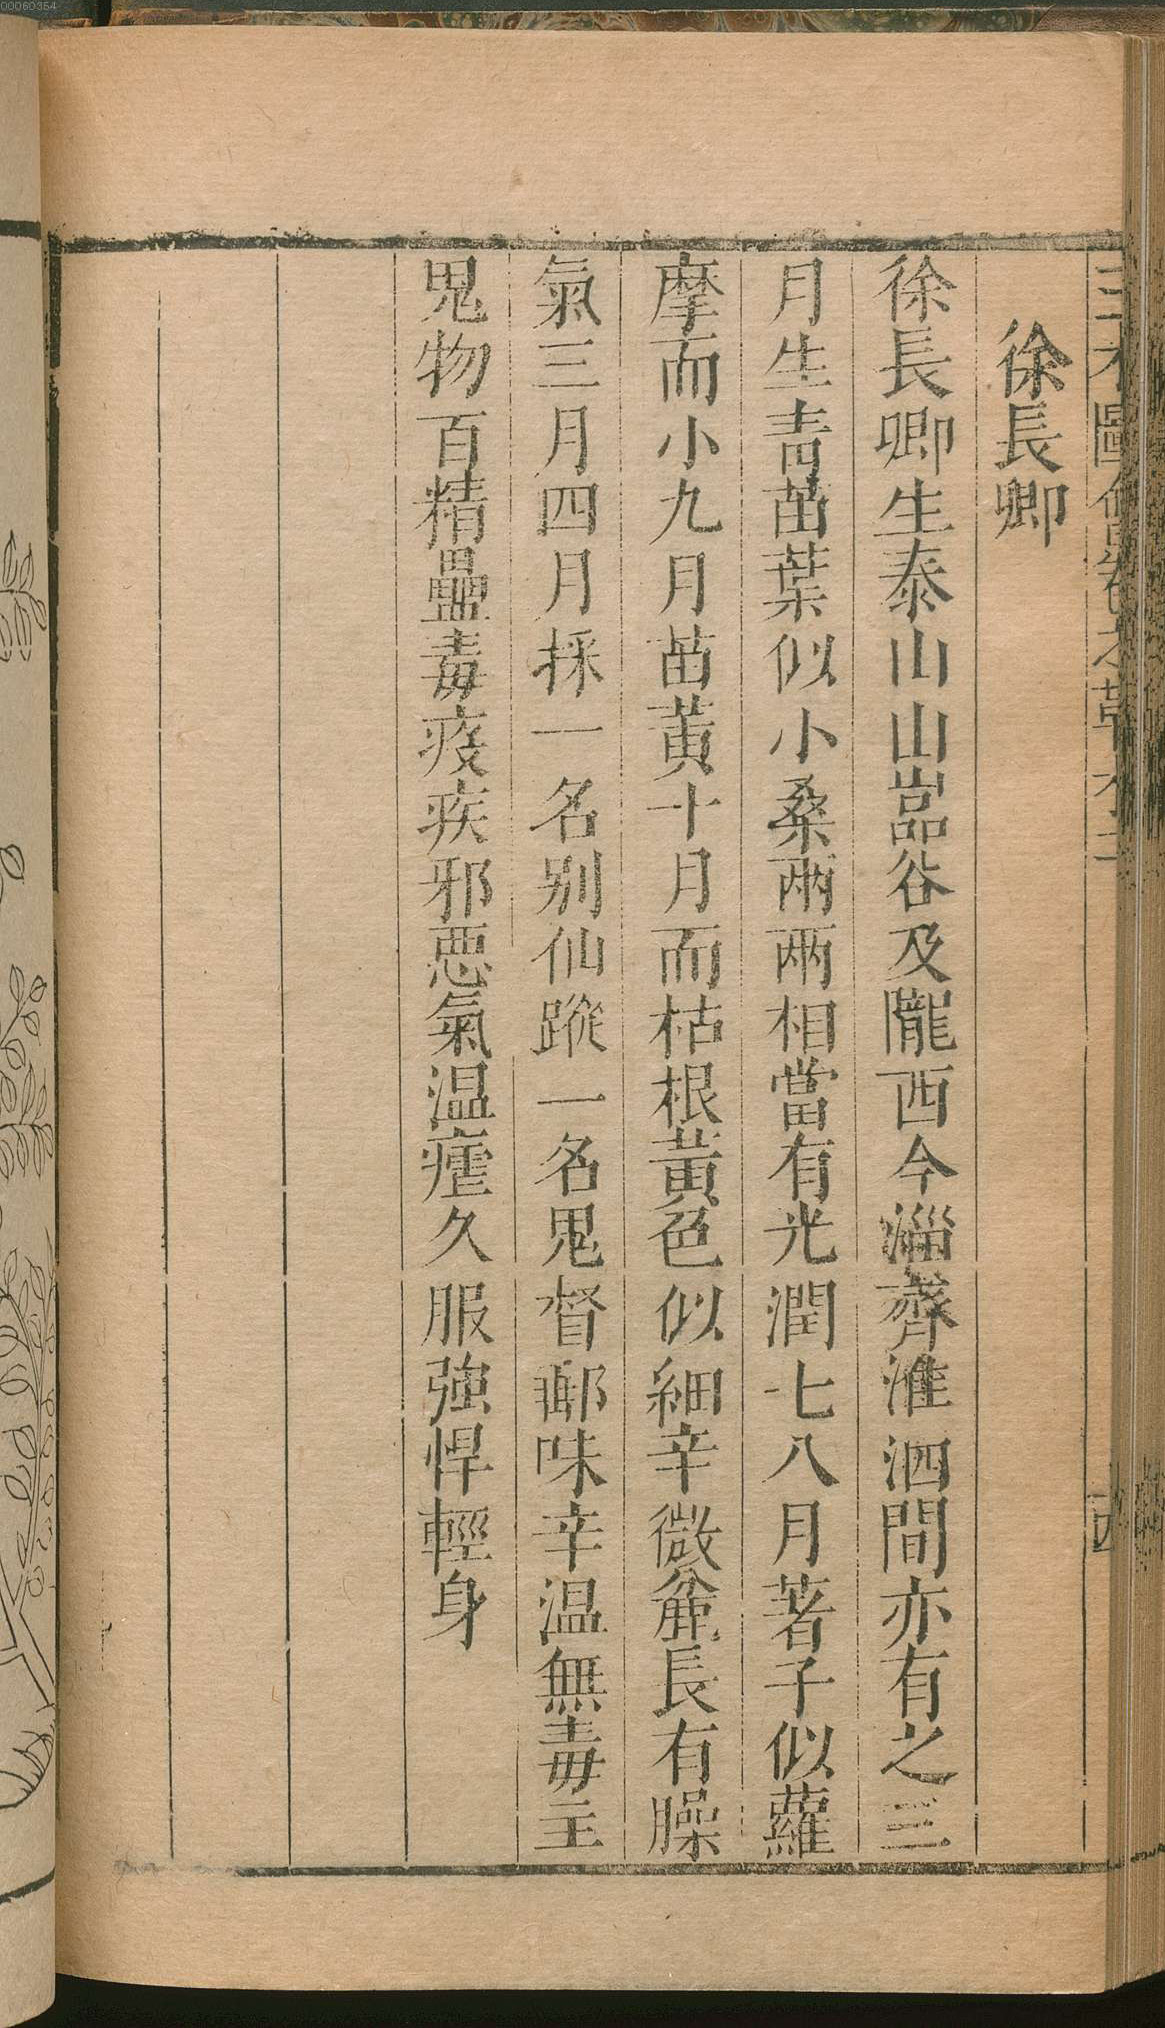 徐長卿
徐長卿生泰山山嵓谷及隴西今淄齊淮泗間亦有之三
月生青苗葉似小桑兩兩相當有光潤七八月著子似蘿
摩而小九月苗黃十月而枯根黃色似細辛微麄長有臊
氣三月四月採一名別仙蹤一名鬼督郵味辛温無毒主
鬼物百精蠱毒疫疾邪惡氣温瘧久服強悍輕身
00060354